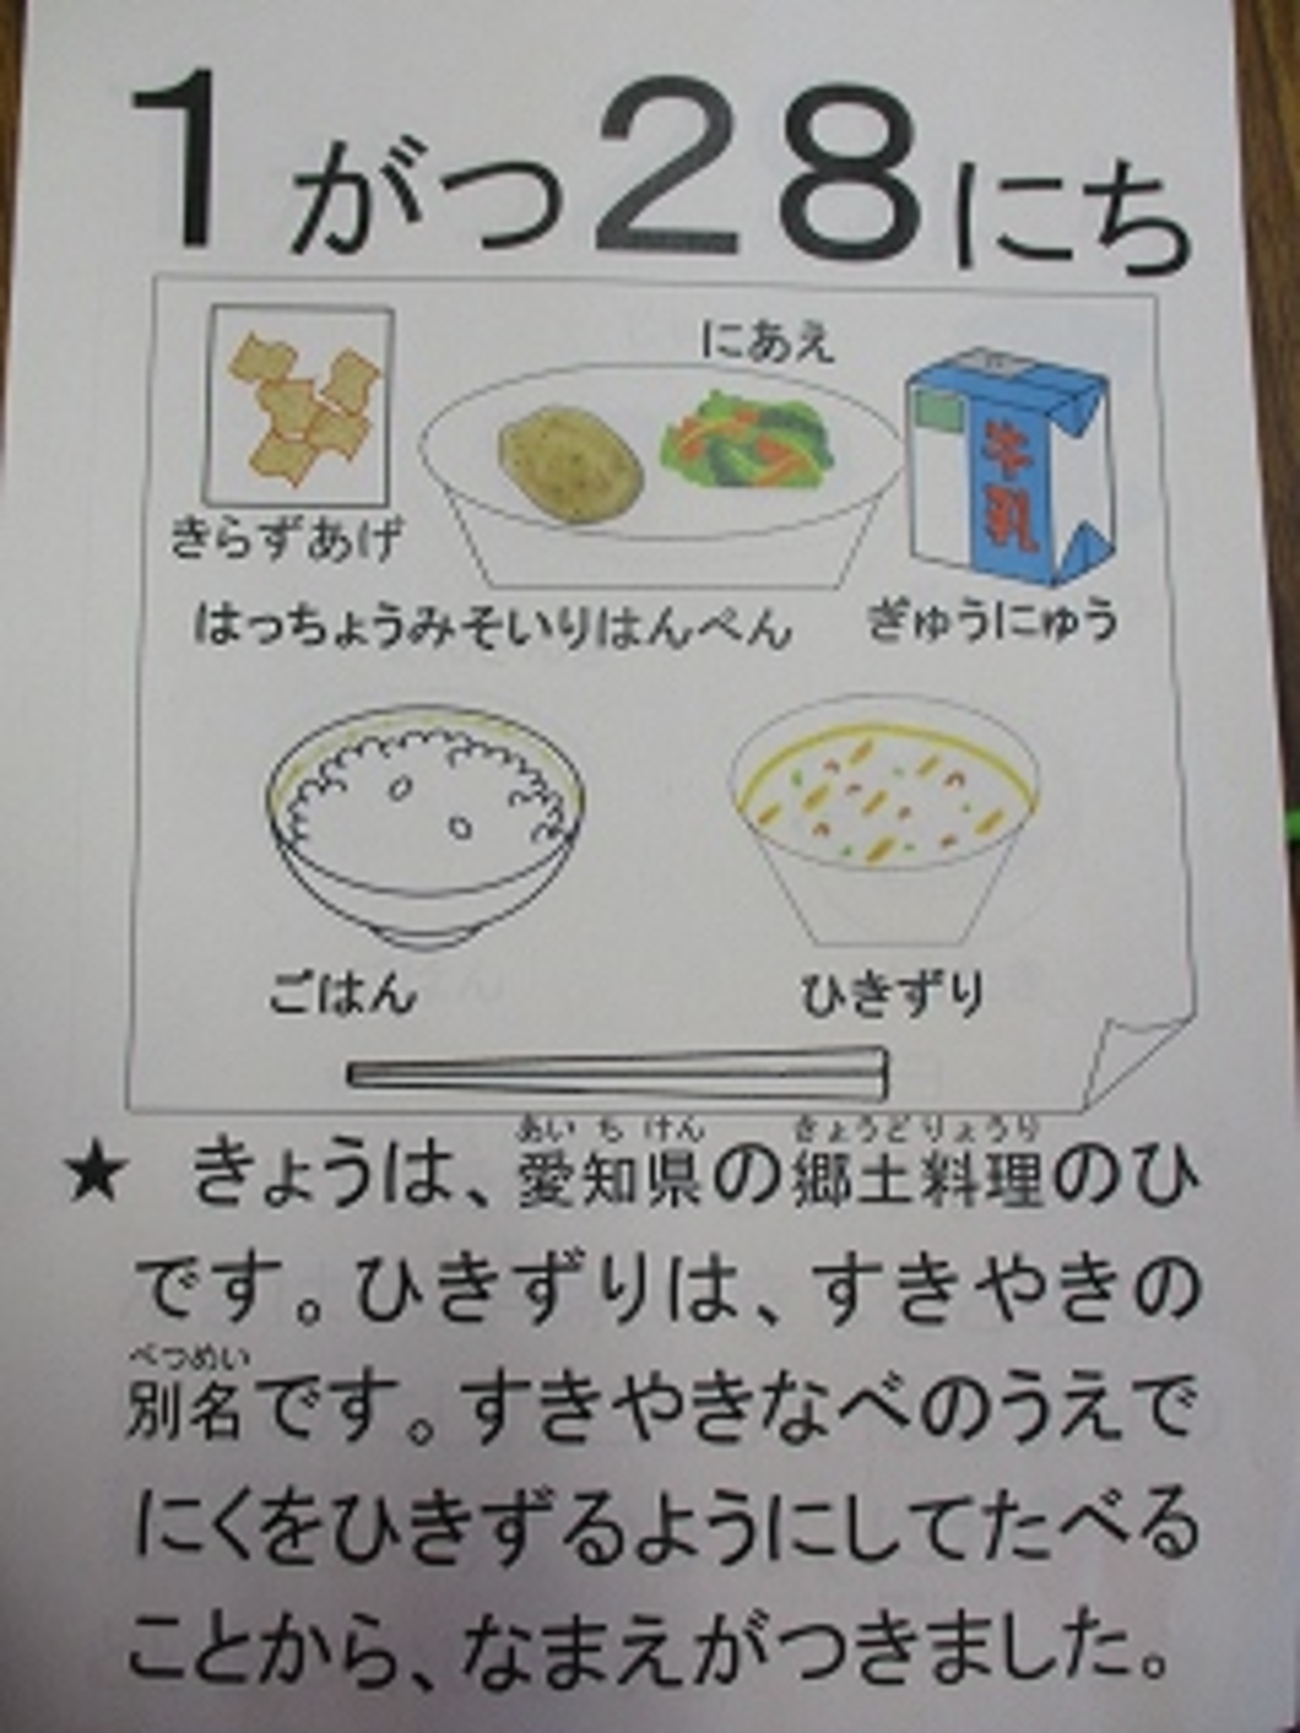 1がつ28にち
にあえ
牛乳
きらずあげ
はっちょうみそいりはんぺん
ぎゅうにゅう
ごはん
ひきずり
あいちけん きょうどりょうり
★ きょうは、愛知県の郷土料理のひ
です。ひきずりは、すきやきの
べつめい
別名です。すきやきなべのうえで
にくをひきずるようにしてたべる
ことから、なまえがつきました。